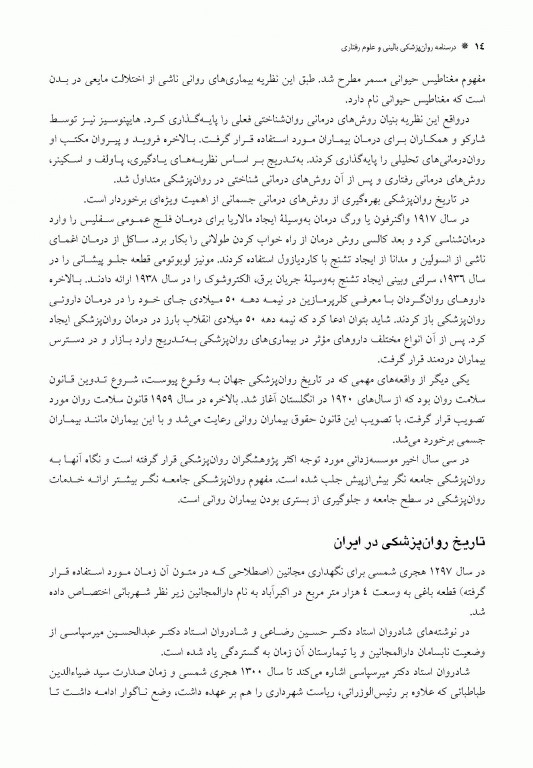 ۱۴ * درسنامه روان‌پزشکی بالینی و علوم رفتاری
مفهوم مغناطیس حیوانی مسمر مطرح شد. طبق این نظریه بیماری‌های روانی ناشی از اختلالت مایعی در بدن
است که مغناطیس حیوانی نام دارد.
درواقع این نظریه بنیان روش‌های درمانی روان‌شناختی فعلی را پایه‌گذاری کرد. هایپنوسیز نیز توسط
شارکو و همکاران برای درمان بیماران مورد استفاده قرار گرفت. بالاخره فروید و پیروان مکتب او
روان‌درمانی‌های تحلیلی را پایه‌گذاری کردند. به‌تدریج بر اساس نظریه‌های یادگیری، پاولف و اسکینر،
روش‌های درمانی رفتاری و پس از آن روش‌های درمانی شناختی در روان‌پزشکی متداول شد.
در تاریخ روان‌پزشکی بهره‌گیری از روش‌های درمانی جسمانی از اهمیت ویژه‌ای برخوردار است.
در سال ۱۹۱۷ واگنرفون یا ورگ درمان به‌وسیلهٔ ایجاد مالاریا برای درمان فلج عمومی سفلیس را وارد
درمان‌شناسی کرد و بعد کالسی روش درمان از راه خواب کردن طولانی را بکار برد. ساکل از درمان اغمای
ناشی از انسولین و مدانا از ایجاد تشنج با کاردیازول استفاده کردند. مونیز لوبوتومی قطعه جلو پیشانی را در
سال ۱۹۳۶، سرلتی وبینی ایجاد تشنج به‌وسیلهٔ جریان برق، الکتروشوک را در سال ۱۹۳۸ ارائه دادند. بالاخره
داروهای روان‌گردان با معرفی کلرپرمازین در نیمه دهه ۵۰ میلادی جای خود را در درمان داروئی
روان‌پزشکی باز کردند. شاید بتوان ادعا کرد که نیمه دهه ۵۰ میلادی انقلاب بارز در درمان روان‌پزشکی ایجاد
کرد. پس از آن انواع مختلف داروهای مؤثر در بیماری‌های روان‌پزشکی به‌تدریج وارد بازار و در دسترس
بیماران دردمند قرار گرفت.
یکی دیگر از واقعه‌های مهمی که در تاریخ روان‌پزشکی جهان به وقوع پیوست، شروع تدوین قانون
سلامت روان بود که از سال‌های ۱۹۲۰ در انگلستان آغاز شد. بالاخره در سال ۱۹۵۹ قانون سلامت روان مورد
تصویب قرار گرفت. با تصویب این قانون حقوق بیماران روانی رعایت می‌شد و با این بیماران مانند بیماران
جسمی برخورد می‌شد.
در سی سال اخیر موسسه‌زدائی مورد توجه اکثر پژوهشگران روان‌پزشکی قرار گرفته است و نگاه آنها به
روان‌پزشکی جامعه نگر بیش‌ازپیش جلب شده است. مفهوم روان‌پزشکی جامعه نگر بیشتر ارائه خدمات
روان‌پزشکی در سطح جامعه و جلوگیری از بستری بودن بیماران روانی است.
تاریخ روان‌پزشکی در ایران
در سال ۱۲۹۷ هجری شمسی برای نگهداری مجانین (اصطلاحی که در متون آن زمان مورد استفاده قرار
گرفته) قطعه باغی به وسعت ۴ هزار متر مربع در اکبرآباد به نام دارالمجانین زیر نظر شهربانی اختصاص داده
شد.
در نوشته‌های شادروان استاد دکتر حسین رضاعی و شادروان استاد دکتر عبدالحسین میرسپاسی از
وضعیت نابسامان دارالمجانین و یا تیمارستان آن زمان به گستردگی یاد شده است.
شادروان استاد دکتر میرسپاسی اشاره می‌کند تا سال ۱۳۰۰ هجری شمسی و زمان صدارت سید ضیاءالدین
طباطبائی که علاوه بر رئیس‌الوزرائی، ریاست شهرداری را هم بر عهده داشت، وضع ناگوار ادامه داشت تا